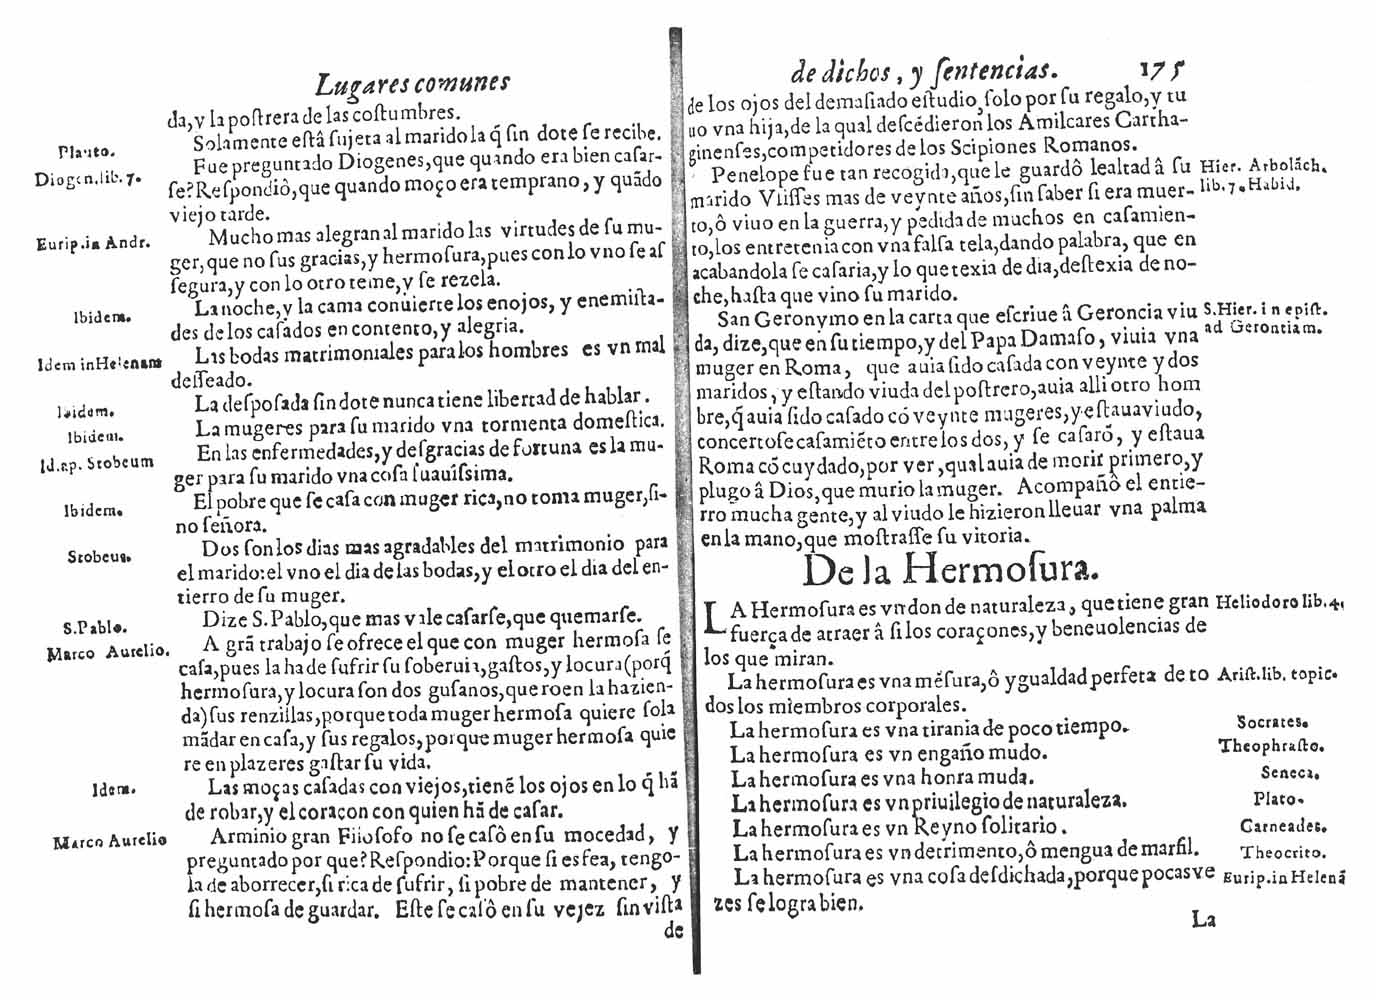 Lugares comunes
da, y la poſtrera de las coſtumbres.
Plauto.
Solamente eſtâ ſujeta al marido la q̃ ſin dote ſe recibe.
Diogen. lib. 7.
Fue preguntado Diogenes, que quando era bien caſar-
ſe? Reſpondiô, que quando moço era temprano, y quãdo
viejo tarde.
Eurip. in Andr.
Mucho mas alegran al marido las virtudes de ſu mu-
ger, que no ſus gracias, y hermoſura, pues con lo vno ſe aſ
ſegura, y con lo otro teme, y ſe rezela.
Ibidem.
La noche, y la cama conuierte los enojos, y enemiſta-
des de los caſados en contento, y alegria.
Idem in Helenam
Las bodas matrimoniales para los hombres es vn mal
deſſeado.
Ibidem.
La deſpoſada ſin dote nunca tiene libertad de hablar.
Ibidem.
La mugeres para ſu marido vna tormenta domeſtica.
Id. ap. Stobeum
En las enfermedades, y deſgracias de fortuna es la mu-
ger para ſu marido vna coſa ſuauiſsima.
Ibidem.
El pobre que ſe caſa con muger rica, no toma muger, ſi-
no ſeñora.
Stobeus.
Dos ſon los dias mas agradables del matrimonio para
el marido: el vno el dia de las bodas, y el otro el dia del en-
tierro de ſu muger.
S. Pablo.
Dize S. Pablo, que mas vale caſarſe, que quemarſe.
Marco Aurelio.
A grã trabajo ſe ofrece el que con muger hermoſa ſe
caſa, pues la ha de ſufrir ſu ſoberuia, gaſtos, y locura (porq̃
hermoſura, y locura ſon dos guſanos, que roen la hazien-
da) ſus renzillas, porque toda muger hermoſa quiere ſola
mãdar en caſa, y ſus regalos, porque muger hermoſa quie
re en plazeres gaſtar ſu vida.
Idem.
Las moças caſadas con viejos, tienẽ los ojos en lo q̃ hã
de robar, y el coraçon con quien hã de caſar.
Marco Aurelio
Arminio gran Filoſofo no ſe caſô en ſu mocedad, y
preguntado por que? Reſpondio: Porque ſi es fea, tengo-
la de aborrecer, ſi rica de ſufrir, ſi pobre de mantener, y
ſi hermoſa de guardar. Eſte ſe caſô en ſu vejez ſin viſta
de
de dichos, y ſentencias. 175
de los ojos del demaſiado eſtudio, ſolo por ſu regalo, y tu
uo vna hija, de la qual deſcẽdieron los Amilcares Cartha-
ginenſes, competidores de los Scipiones Romanos.
Penelope fue tan recogida, que le guardô lealtad â ſu
Hier. Arbolãch.
lib. 7. Habid.
marido Vliſſes mas de veynte años, ſin ſaber ſi era muer-
to, ô viuo en la guerra, y pedida de muchos en caſamien-
to, los entretenia con vna falſa tela, dando palabra, que en
acabandola ſe caſaria, y lo que texia de dia, deſtexia de no-
che, haſta que vino ſu marido.
San Geronymo en la carta que eſcriue â Geroncia viu
S. Hier. in epiſt.
ad Gerontiam.
da, dize, que en ſu tiempo, y del Papa Damaſo, viuia vna
muger en Roma, que auia ſido caſada con veynte y dos
maridos, y eſtando viuda del poſtrero, auia alli otro hom
bre, q̃ auia ſido caſado cõ veynte mugeres, y eſtaua viudo,
concertoſe caſamiẽto entre los dos, y ſe caſarõ, y eſtaua
Roma cõ cuydado, por ver, qual auia de morir primero, y
plugo â Dios, que murio la muger. Acompañô el entie-
rro mucha gente, y al viudo le hizieron lleuar vna palma
en la mano, que moſtraſſe ſu vitoria.
De la Hermoſura.
LA Hermoſura es vn don de naturaleza, que tiene gran
Heliodoro lib. 4.
fuerça de atraer â ſi los coraçones, y beneuolencias de
los que miran.
La hermoſura es vna mẽſura, ô ygualdad perfeta de to
Ariſt. lib. topic.
dos los miembros corporales.
La hermoſura es vna tirania de poco tiempo.
Socrates.
La hermoſura es vn engaño mudo.
Theophraſto.
La hermoſura es vna honra muda.
Seneca.
La hermoſura es vn priuilegio de naturaleza.
Plato.
La hermoſura es vn Reyno ſolitario.
Carneades.
La hermoſura es vn detrimento, ô mengua de marfil.
Theocrito.
La hermoſura es vna coſa deſdichada, porque pocas ve
Eurip. in Helenã
zes ſe logra bien.
La